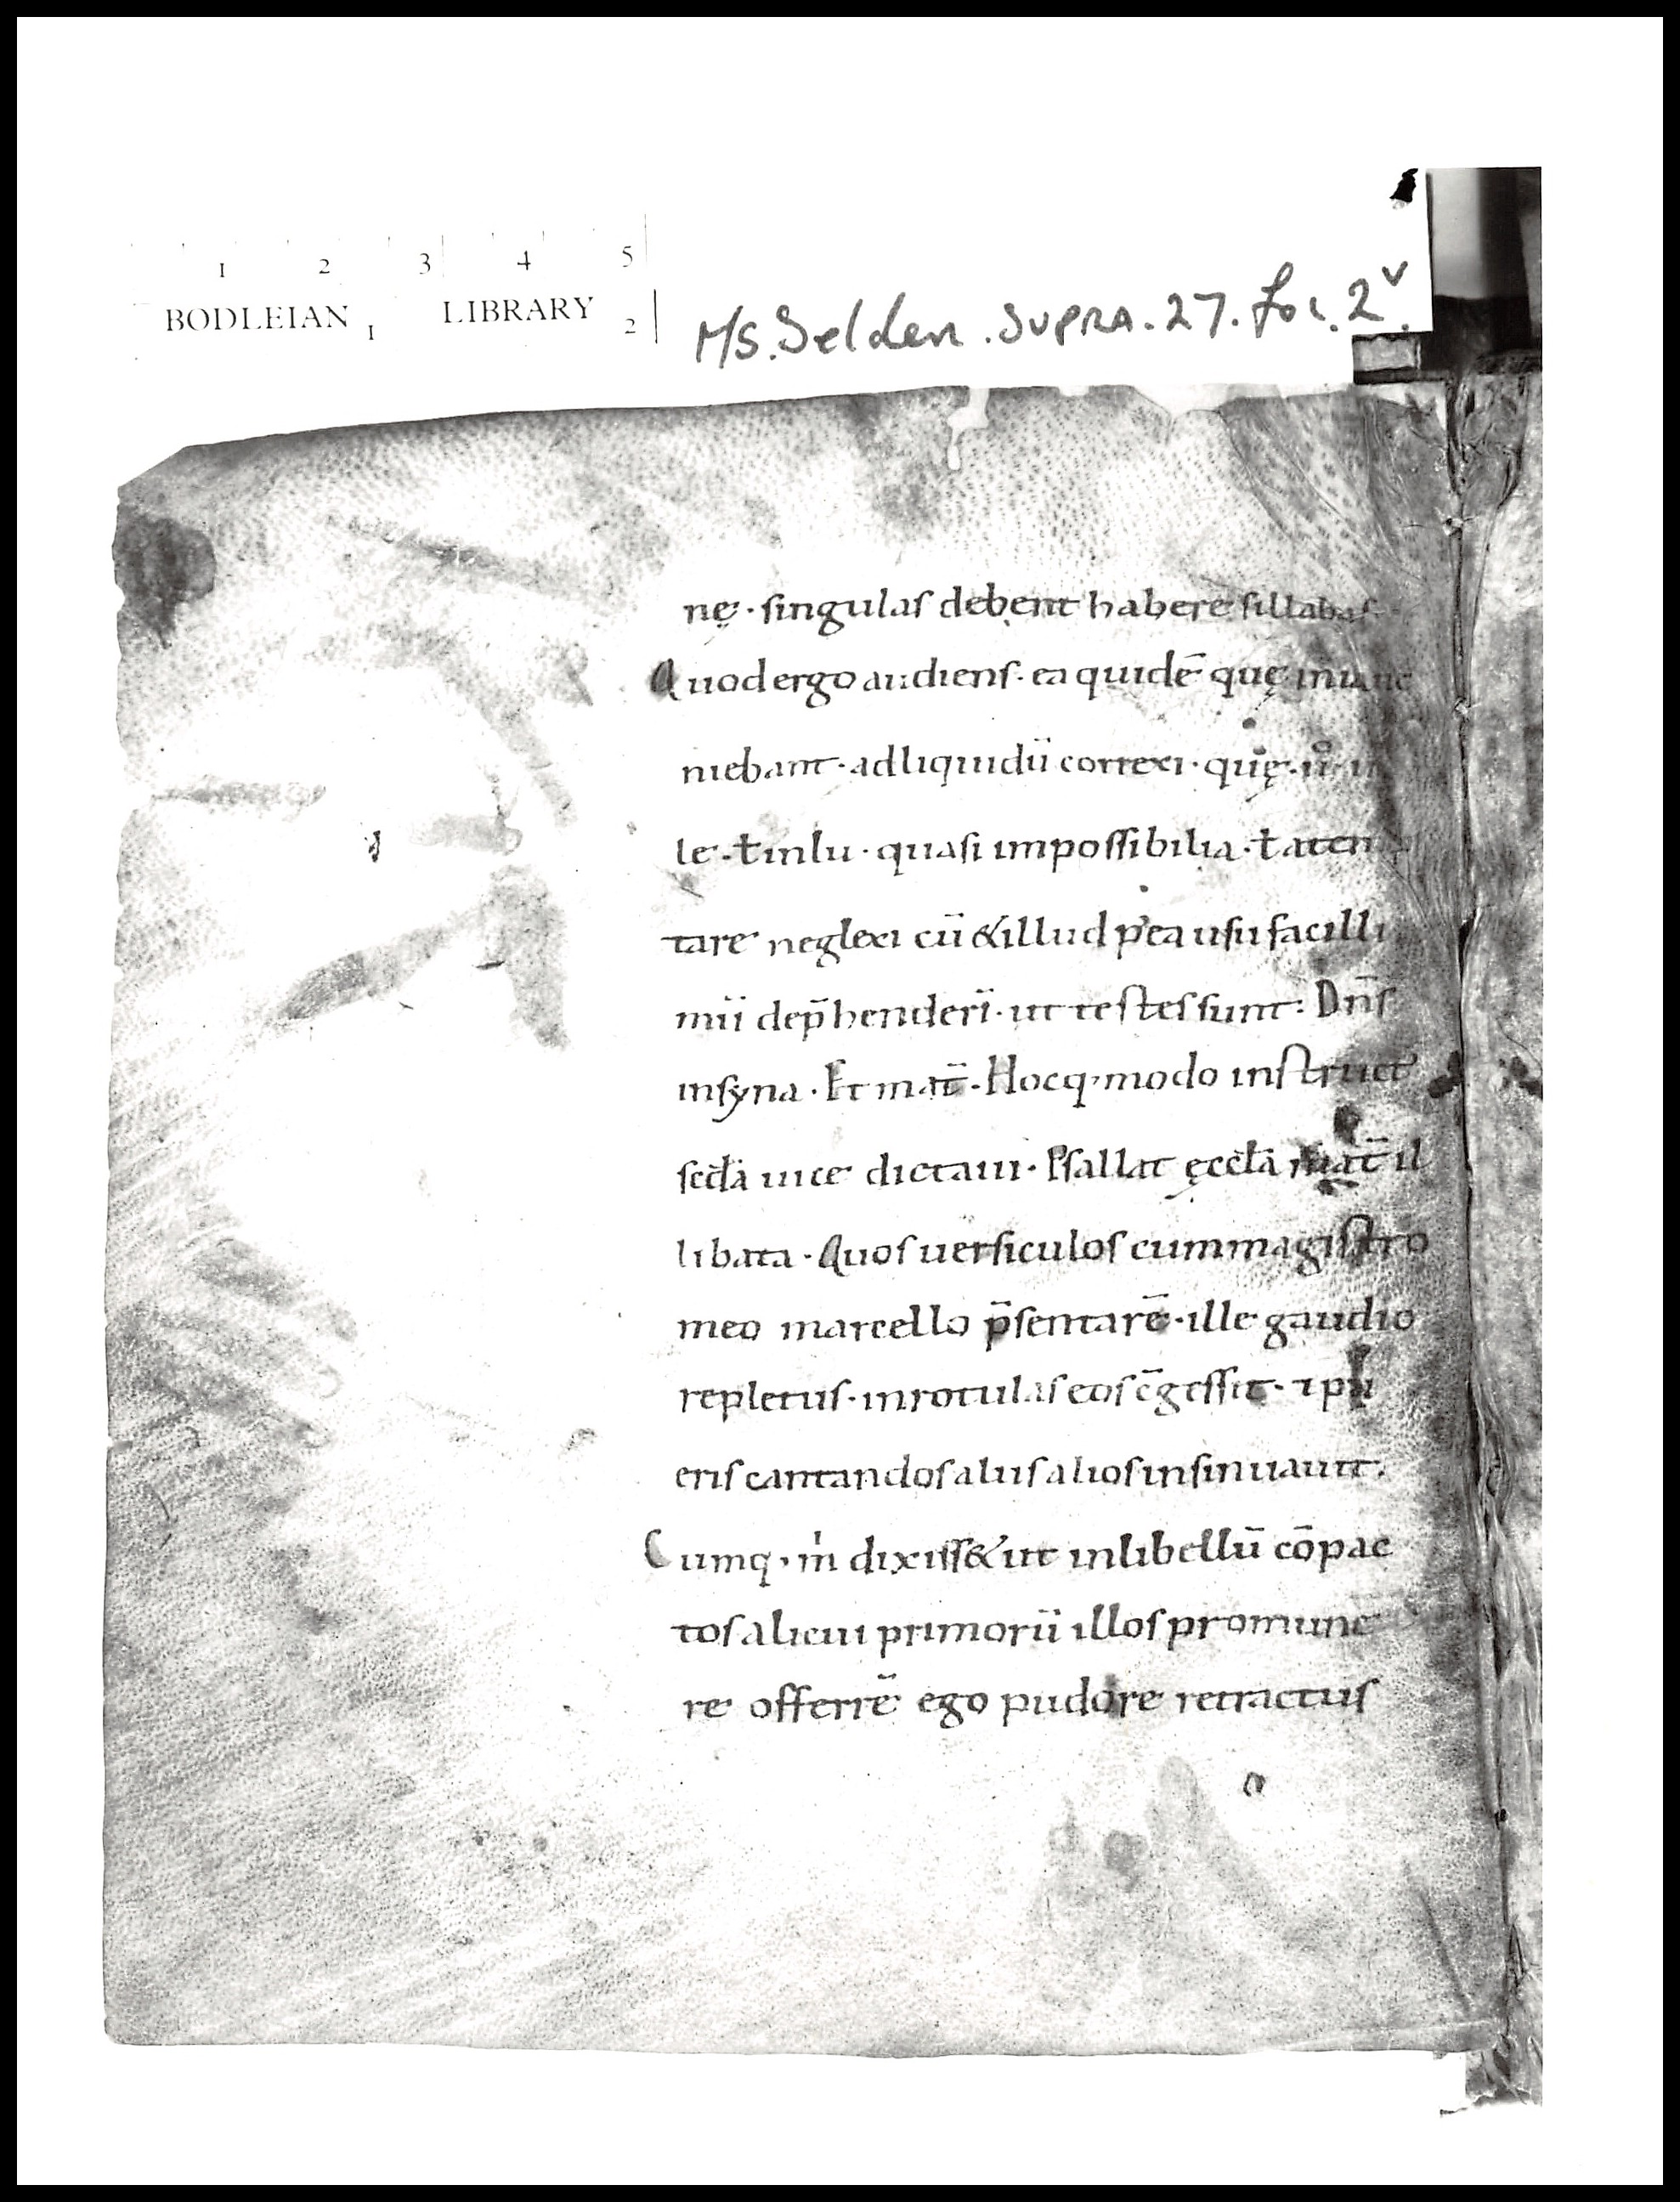 1 2 3 4 5
BODLEIAN 1 LIBRARY 2
MS. Selden. supra. 27. fol. 2v.
nę · singulas debent habere sillabas
Quod ergo audiens · ea quidē quę in
niebant · ad liquidū correxi · quę ·
le · ł in lu · quasi impossibilia · ł
tare neglexi cū & illud p'ea usu facilli
mū dep̄henderī · ut testes sunt : Dn̄s
in syna · Et mat̄ · Hocq· modo instruct
scd̄a uice dictaui · Psallat ęccła mat̄ il
libata · Quos uersiculos cum magistro
meo marcello p̄sentarē · ille gaudio
repletus · in rotulas eos c̄gessit · ⁊ pu
eris cantandos aliis alios insinuauit ·
Cumq· m̍ dixiss& ut in libellū cōpac
tos alicui primorū illos pro mune
re offerrē ego pudore retractus